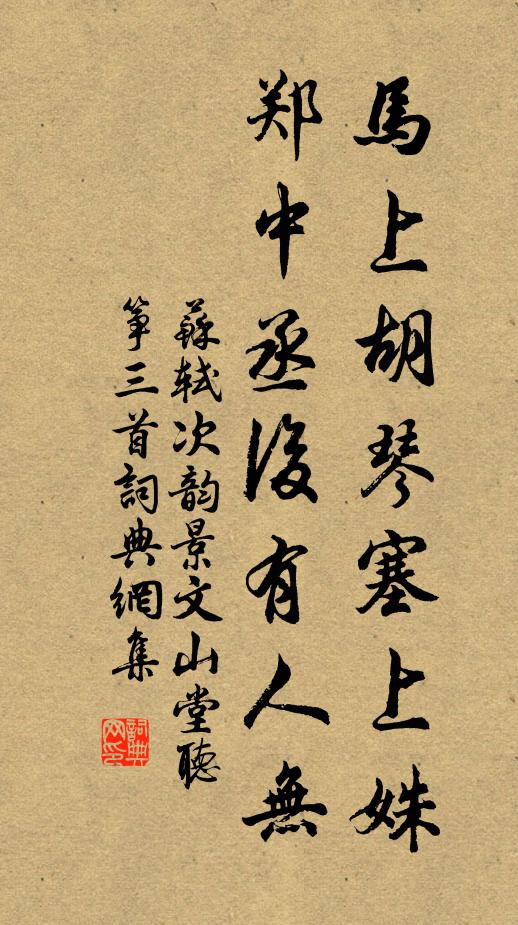 馬上胡琴塞上姝
郑中丞後有人無
蘇軾次韵景文山堂聽
筝三首詞典網集
詞典網印